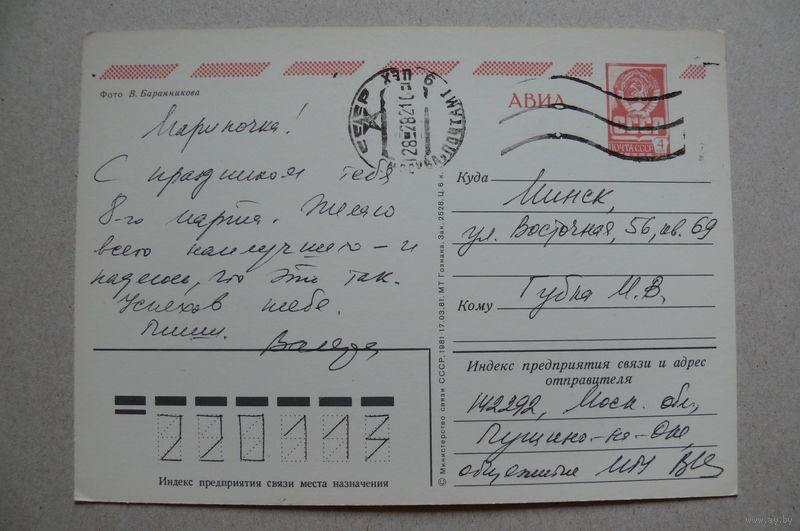 Фото В. Баранникова
АВИА
СССР
ПОЧТА СССР
4
Мариночка!
С праздником тебя
8-го марта. Желаю
всего наилучшего – и
надеюсь, что это так.
Успехов тебе.
Пиши.
Куда Минск,
ул. Восточная, 56, кв. 69
Кому Губка М.В.
Индекс предприятия связи и адрес
отправителя
142292, Моск. обл.,
Пущино-на-Оке,
общежитие
220113
Индекс предприятия связи места назначения
© Министерство связи СССР, 1981 · 17.03.81. МТ Гознака. Зак. 2528. Ц. 6 к.
www.ay.by